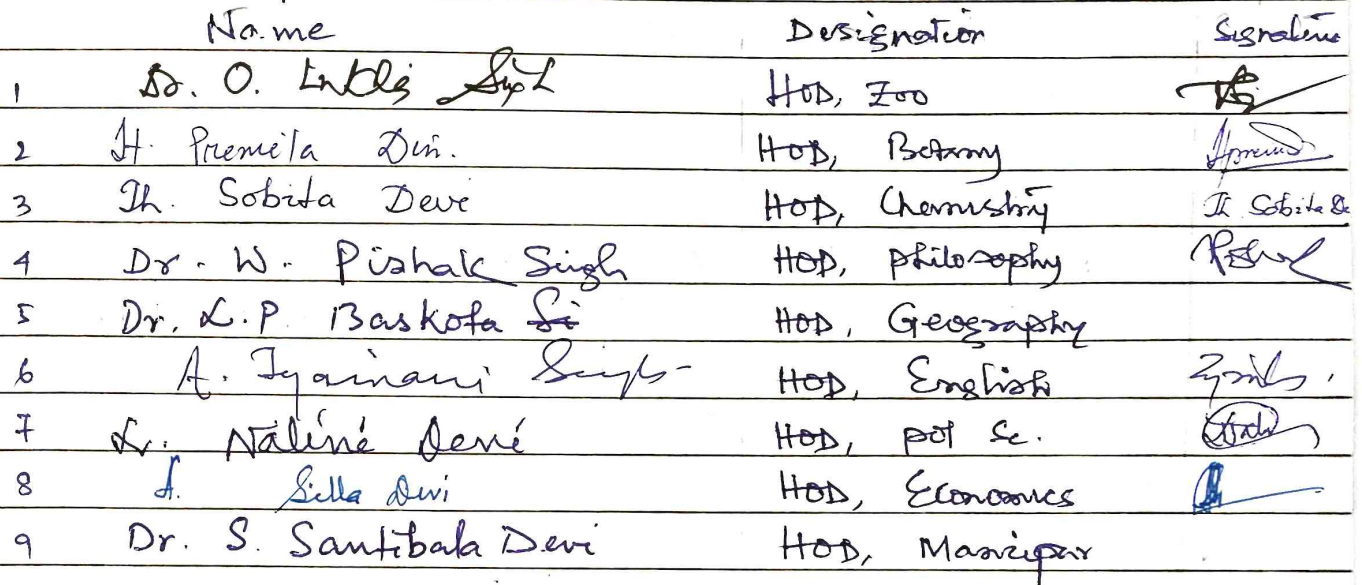 Name Designation Signature
1 Dr. O. Singh HOD, Zoo
2 H. Premila Devi. HOD, Botany
3 Th. Sobita Devi HOD, Chemistry Th Sobita De
4 Dr. W. Pishak Singh HOD, philosophy
5 Dr. L.P. Baskota Si HOD, Geography
6 A. Singh HOD, English
7 L. Nalini Devi HOD, pol Sc.
8 A. Silla Devi HOD, Economics
9 Dr. S. Santibala Devi HOD, Manipur